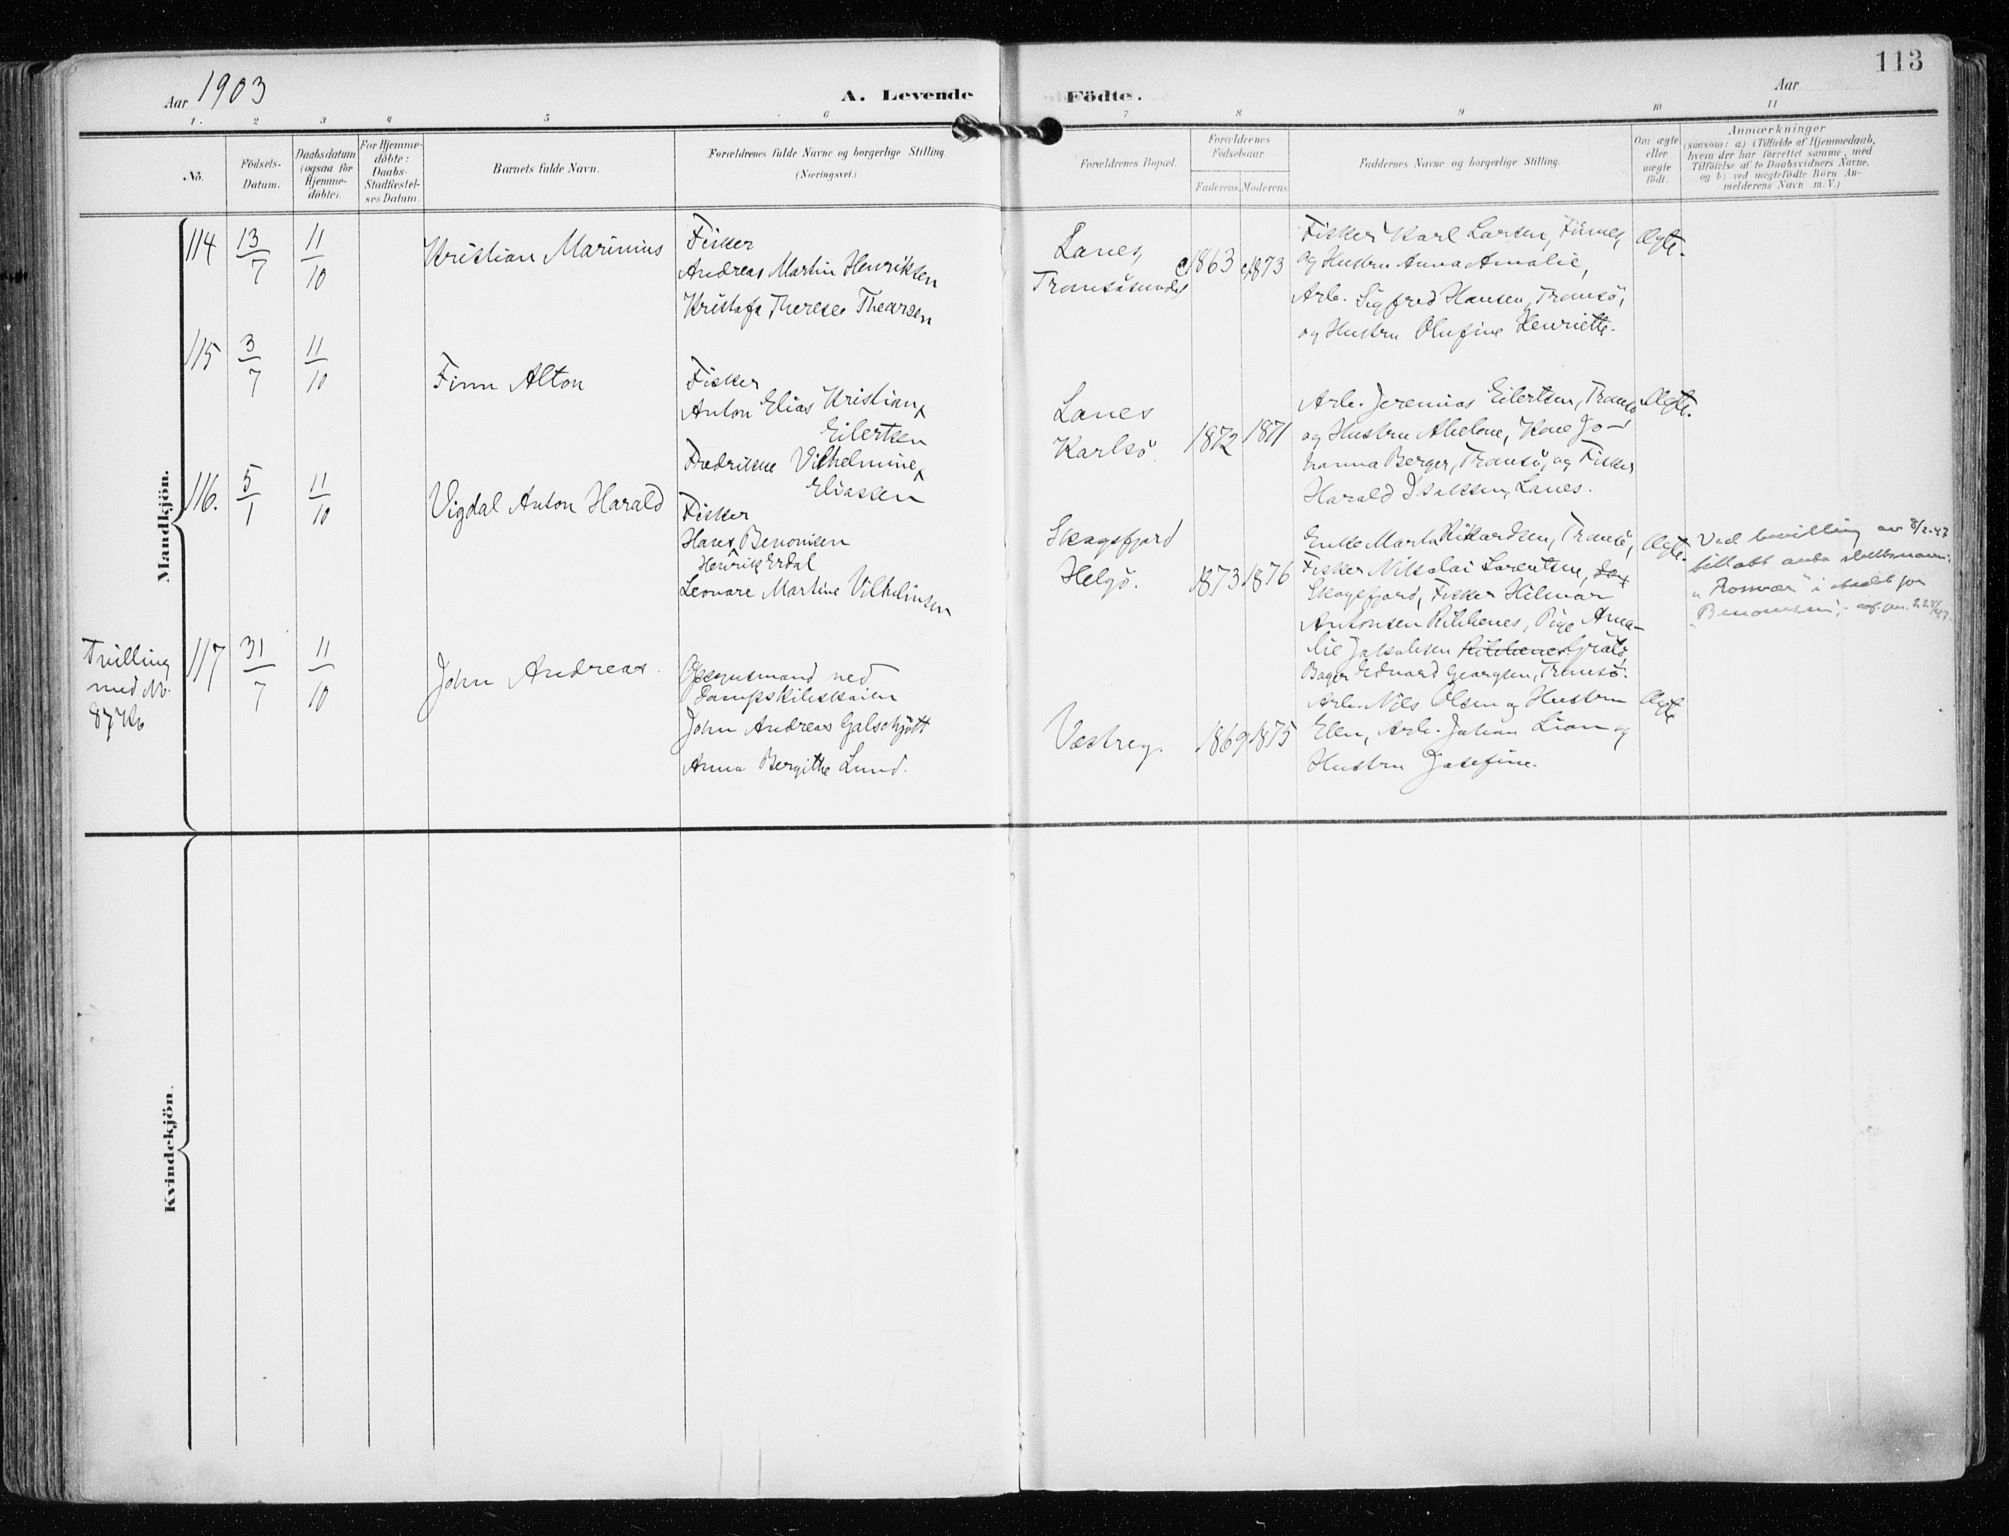 113
Aar 1903
A. Levende
Födte.
Aar
1. 2 3 4 5 6 7 8 9 10 11
No.
Födsels-
Datum.
Daabsdatum
(ogsaa for
Hjemme-
döbte).
For Hjemme-
döbte:
Daabs-
Stadfæstel-
ses Datum.
Barnets fulde Navn.
Forældrenes fulde Navne og borgerlige Stilling.
(Næringsvei.)
Forældrenes Bopæl.
Forældrenes
Födselsaar.
Faderens. Moderens.
Faddernes Navne og borgerlige Stilling.
Om ægte
eller
uægte
födt.
Anmærkninger
(saasom: a) i Tilfælde af Hjemmedaab,
hvem der har forrettet samme, med
Tilföielse af to Daabsvidners Navne,
og b) ved uægtefödte Börn An-
melderens Navn m. V.)
Mandkjön.
114
13/7
11/10
Kristian Marinius
Fisker
Andreas Martin Henriksen
Therese
Lanes,
Tromsösundet
1863
1873
Fisker Karl Larsen,
og Hustru Anna Amalie,
Arb. Sigfred Hansen, Tromsö,
og Hustru Olufine Henriette.
Ægte.
115
3/7
11/10
Finn Alton
Fisker
Anton Elias Kristian
Eilertsen
Fredrikke Vilhelmine
Eliassen
Lanes
Karlsö.
1872
1871
Arb. Jeremias Eilertsen, Tromsö
og Hustru Abelone, Kone Jo-
hanna Berger, Tromsö, og Fisker
Harald Isaksen, Lanes.
Ægte.
116.
5/1
11/10
Vigdal Anton Harald
Fisker
Hans Benonisen
Henrik Erdal
Leonare Martine Vilhelmsen
Skogsfjord
Helgö.
1873
1876
Enke Marta Rikardsen, Tromsö,
Fisker Nikolai Lorentsen,
Skogsfjord, Fisker Hilmar
Antonsen Pige Ama-
lie Jakobsen
Bager Edvard Georgsen, Tromsö.
Ægte.
Ved bevilling av 8/2-47
tillatt anta slektsnavn:
i stedet for
"Benonisen",
Tvilling
med No.
87
117
31/7
11/10
John Andreas.
Opsynsmand ved
Dampskibskaien
John Andreas Galschjött
Anna Bergithe Lund.
Vestreg.
1869
1875
Arb. Nils Olsen og Hustru
Ellen, Arb. Johan Lian og
Hustru Josefine.
Ægte
Kvindekjön.